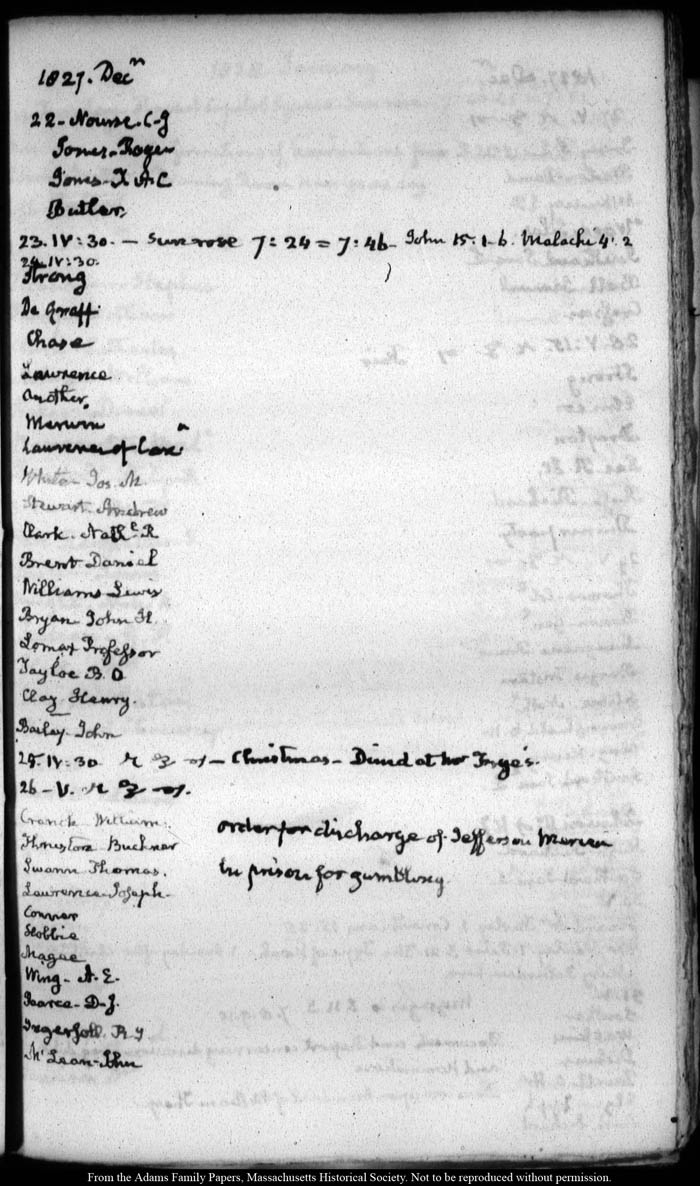 1827. Decr
22 - Nourse. C-J
Jones - Roger
Jones - T. A. C
Butler.
23. IV:30. — Sun rose 7:24 = 7:46 - John 15:1-6. Malachi 4.2
24. IV:30.
Strong
De Graff.
Chase
Lawrence
another.
Merwin
Lawrence of
Jos. M.
Stewart. Andrew
Clark. R
Brent Daniel
Williams Lewis
Bryan John H.
Lomax Professor
Tayloe B. O
Clay Henry.
Bailey. John
25. IV:30 — Christmas - Dined at Mr Frye's.
26 - V.
Cranch William.
Thruston Buckner order for discharge of Jefferson
Swann Thomas. in prison for gambling
Lawrence Joseph.
Connor
Magee
Wing - A. E.
Pearce - D. J.
Ingersoll. R. I
McLean - John
From the Adams Family Papers, Massachusetts Historical Society. Not to be reproduced without permission.